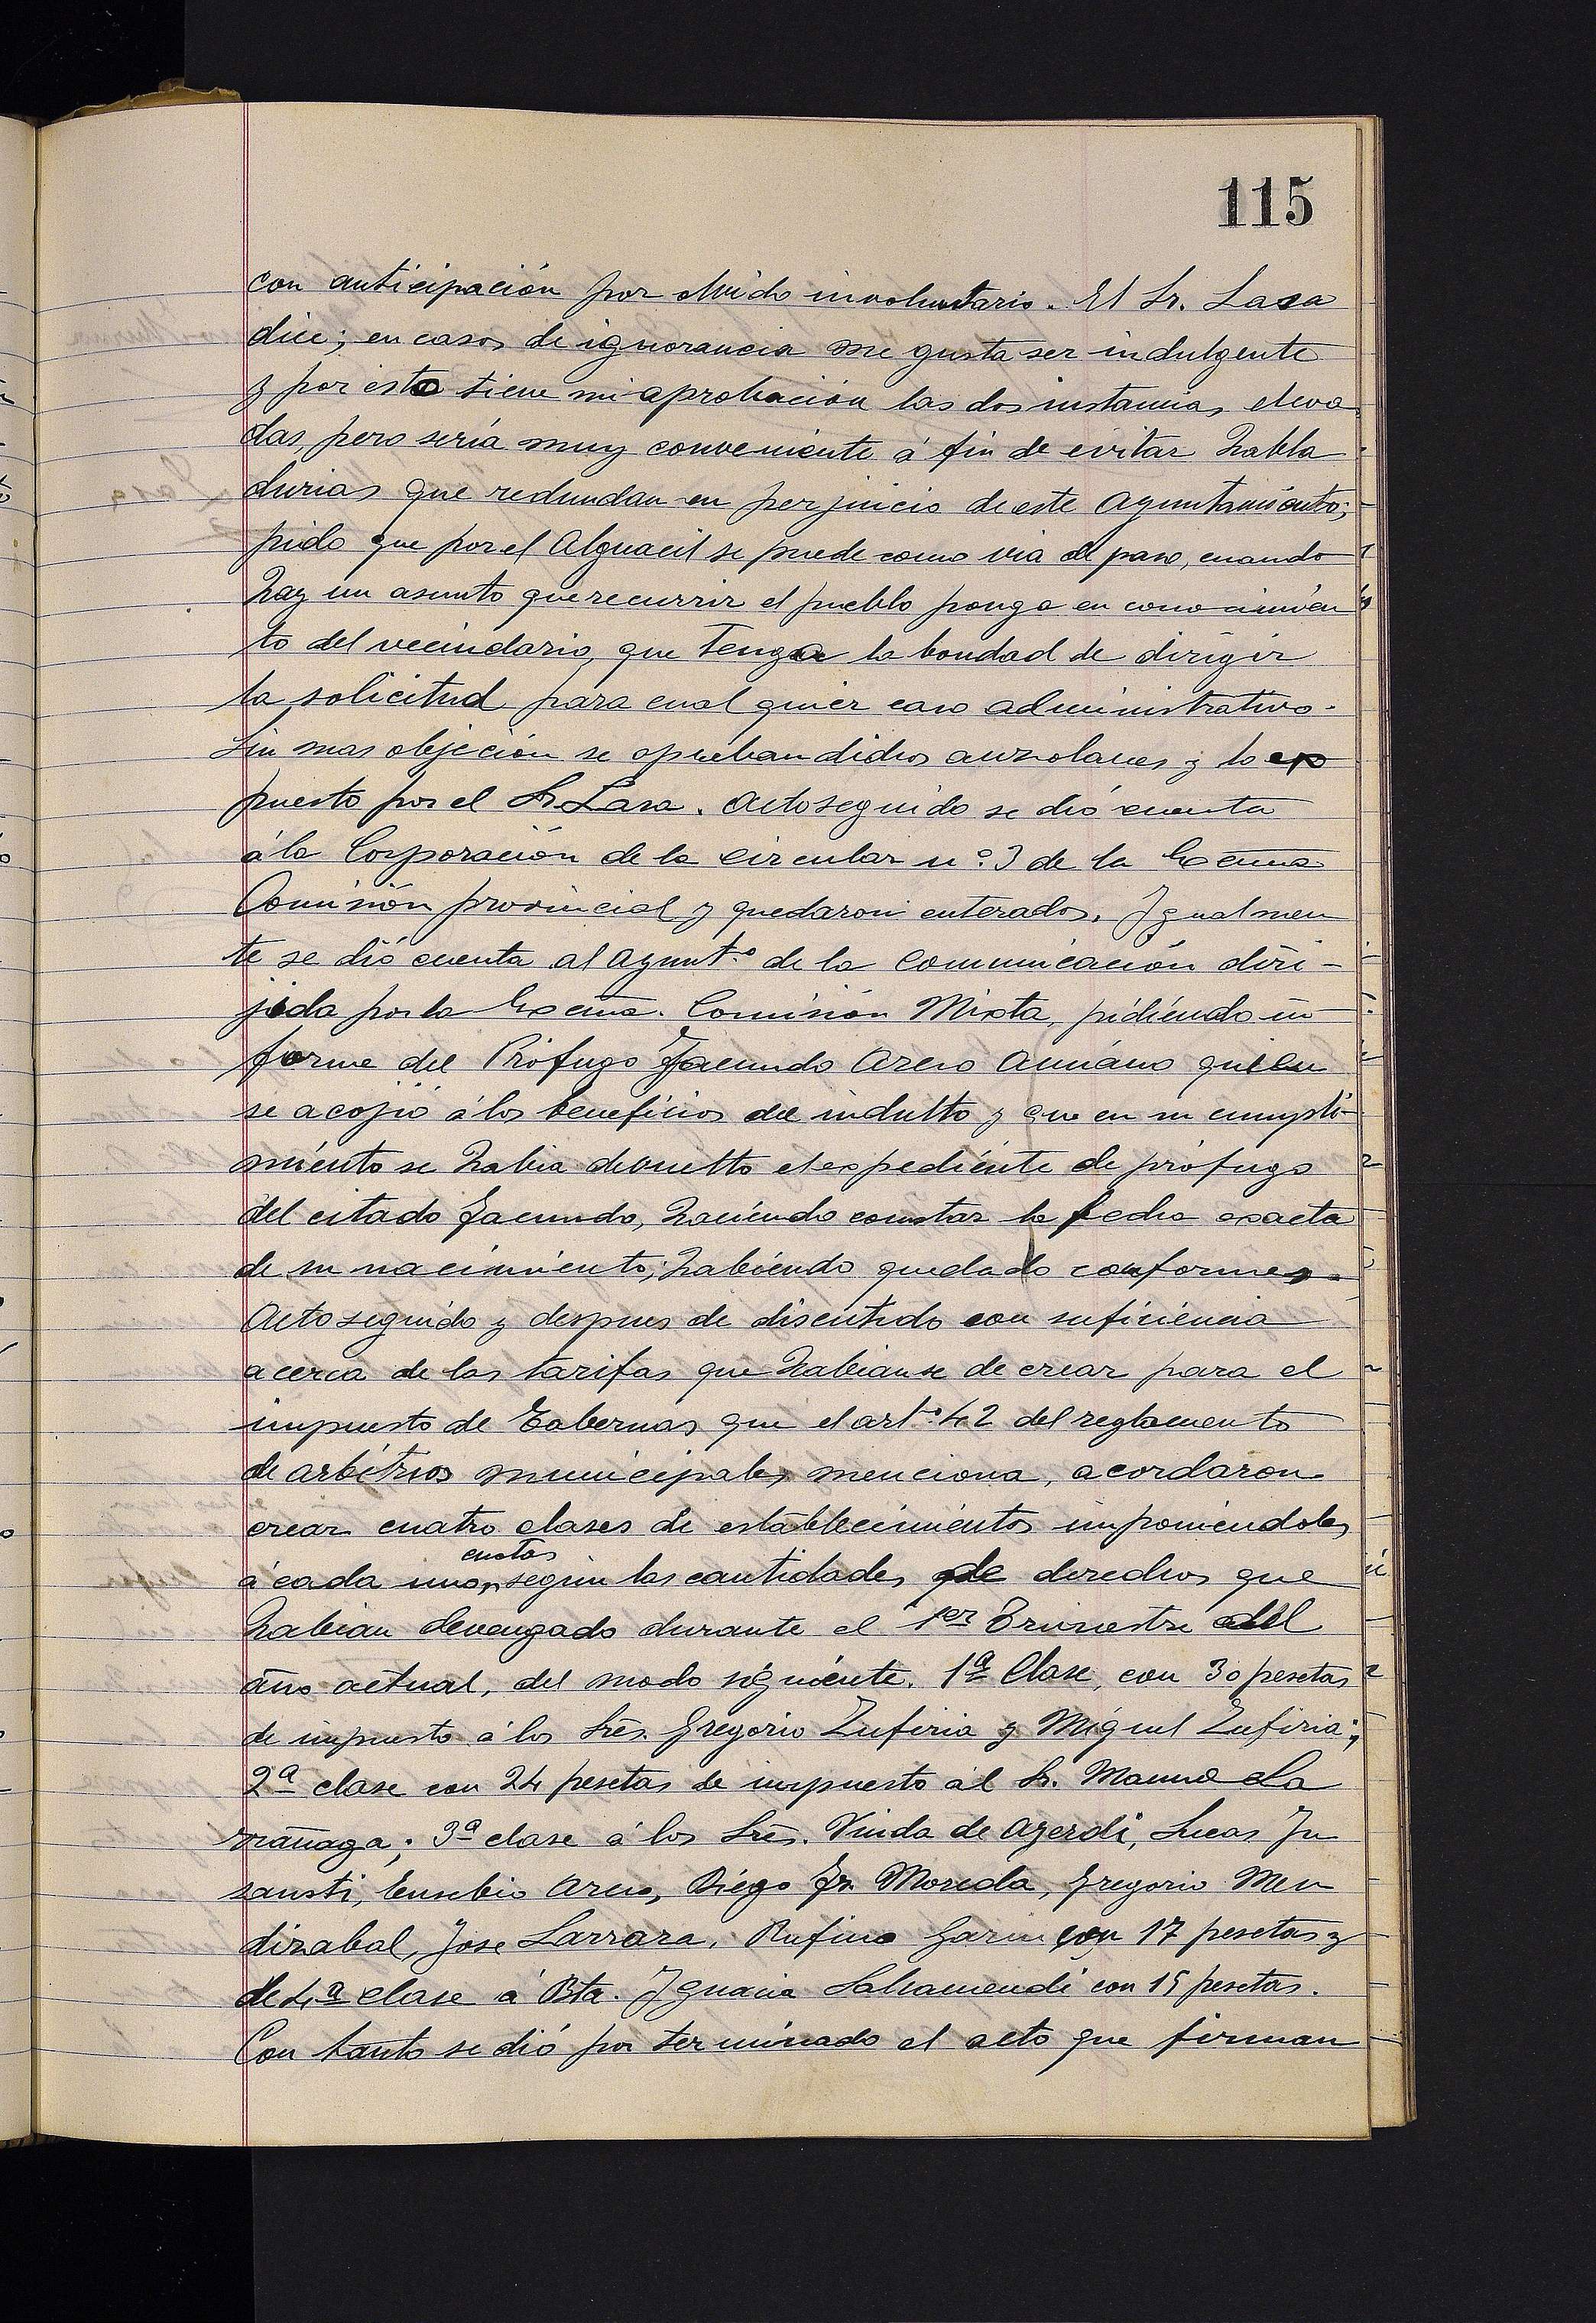 115
con anticipación por olvido involuntario. El Sr. Lasa
dice; en casos de ignorancia me gusta ser indulgente
y por esto tiene mi aprobación las dos instancias eleva
das, pero sería muy conveniente á fin de evitar habla
durias que redundan en perjuicio de este Ayuntamiento;
pido que por el Alguacil se puede como via de paso, cuando
hay un asunto que recurrir el pueblo ponga en conocimien
to del vecindario, que tenga la bondad de dirigir
la solicitud para cual quier caso administrativo.
Sin mas objeción se aprueban dichos auzolanes y lo ex
puesto por el Sr. Lasa. Acto seguido se dió cuenta
á la Corporación de la circular nº. 3 de la Excma
Comisión provincial y quedaron enterados. Igualmen
te se dió cuenta al Ayunt.º de la comunicación diri-
jida por la Excma. Comisión Mixta, pidiendo in
forme del Prófugo Facundo Arcio Amiano quien
se acojió á los beneficios del indulto y que en su cumpli-
miento se habia devuelto el expediente de prófugo
del citado Facundo, haciendo constar la fecha exacta
de su nacimiento; habiendo quedado conformes.
Acto seguido y despues de discutido con suficiencia
acerca de las tarifas que habianse de crear para el
impuesto de Tabernas que el artº. 42 del reglamento
de arbitrios municipales menciona, acordaron
crear cuatro clases de establecimientos imponiendoles
á cada uno, cuotas según las cantidades de derechos que
habian devengado durante el 1er Trimestre del
año actual, del modo siguiente. 1ª Clase, con 30 pesetas
de impuesto á los Sres. Gregorio Zufiria y Miguel Zufiria;
2ª clase con 24 pesetas de impuesto al Sr. Manuel La
rrañaga; 3ª clase á los Sres. Viuda de Azerdi, Lucas In
sausti, Eusebio Arcio, Diego Fz. Moreda, Gregorio Men
dizabal, Jose Larrara, Rufino Garin con 17 pesetas y
de 4ª clase á Bta. Ignacia Salsamendi con 15 pesetas.
Con tanto se dió por terminado el acto que firman